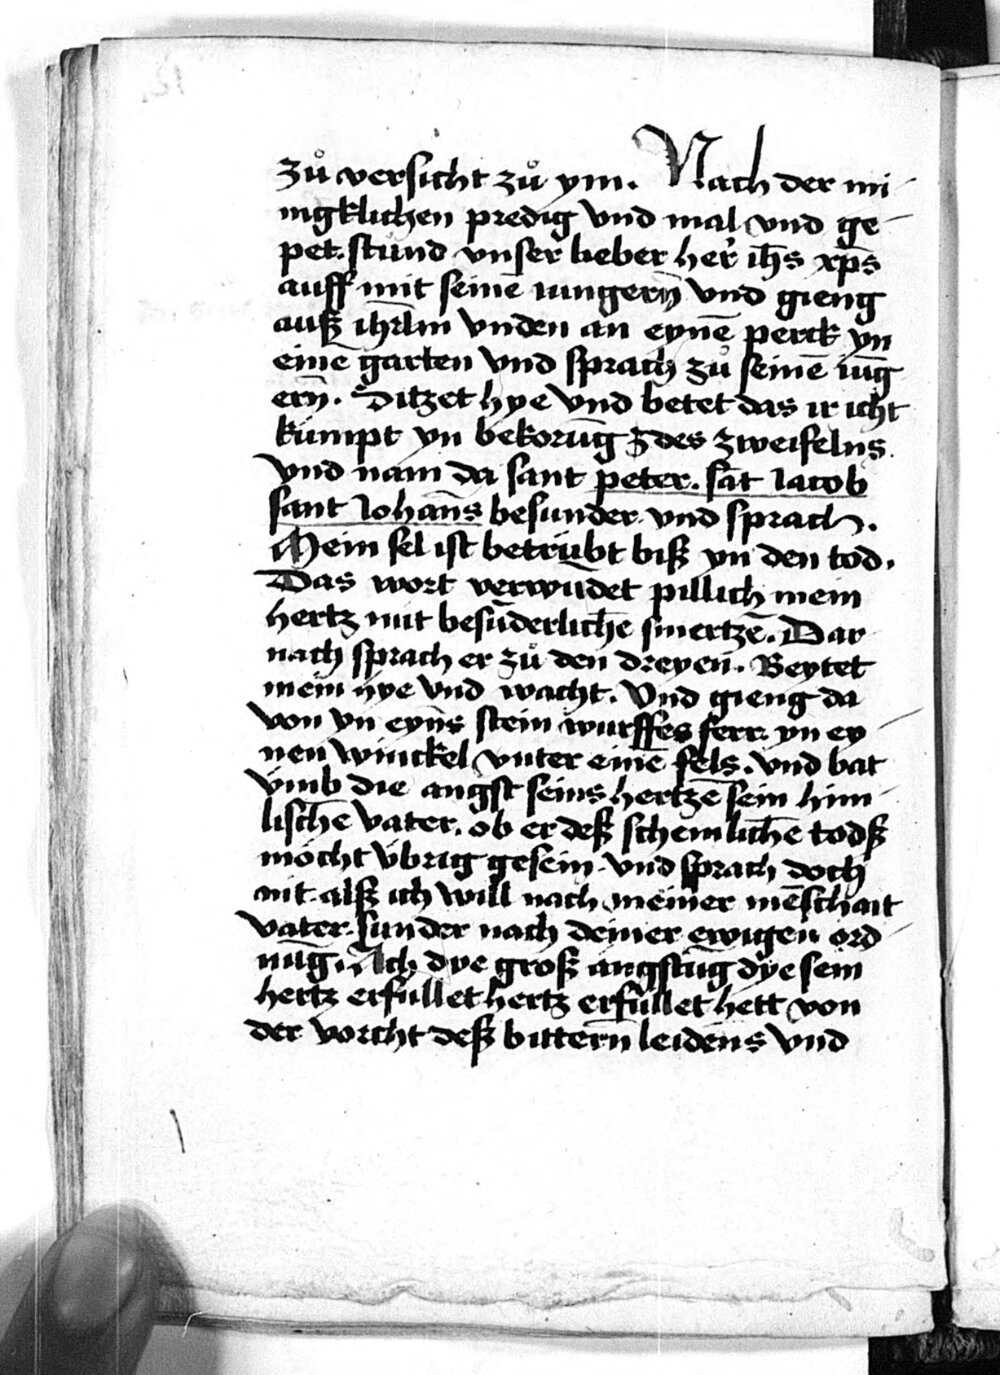 zů versicht zů ym. Nach der mi-
nigklichen predig vnd mal vnd ge-
pet. stůnd vnser lieber her̃ ih̄s xp̄s
auff mit seinē iungerñ vnd gieng
auß ihrlm̄ vnden an eynē perck yn
eine garten vnd sprach zů seinē iūg
erñ. Sitzet hye vnd betet das ir icht
kumpt yn bekorūg des zweifelns.
vnd nam da sant peter. sāt Iacob
sant Iohāns besunder. vnd sprach.
Mein sel ist betrübt biß yn den tod.
Das wort verwūdet pillich mein
hertz mit besūderlichē smertzē. Dar
nach sprach er zů den dreyen. Beytet
mein hye vnd wacht. Vnd gieng da
von yn eyns̄ stein wurffes ferr. yn ey-
nen winckel vnter einē fels. vnd bat
vmb die angst seins hertzē sein him-
lischē vater. ob er deß schemlichē todß
möcht übrig gesein. vnd sprach doch
nit. alß ich will nach meiner mēschait
vater. sunder nach deiner ewigen ord-
nūg. Ach dye groß angstūg dye sein
hertz erfüllet hertz erfüllet hett von
der vorcht deß bitterñ leidens vnd